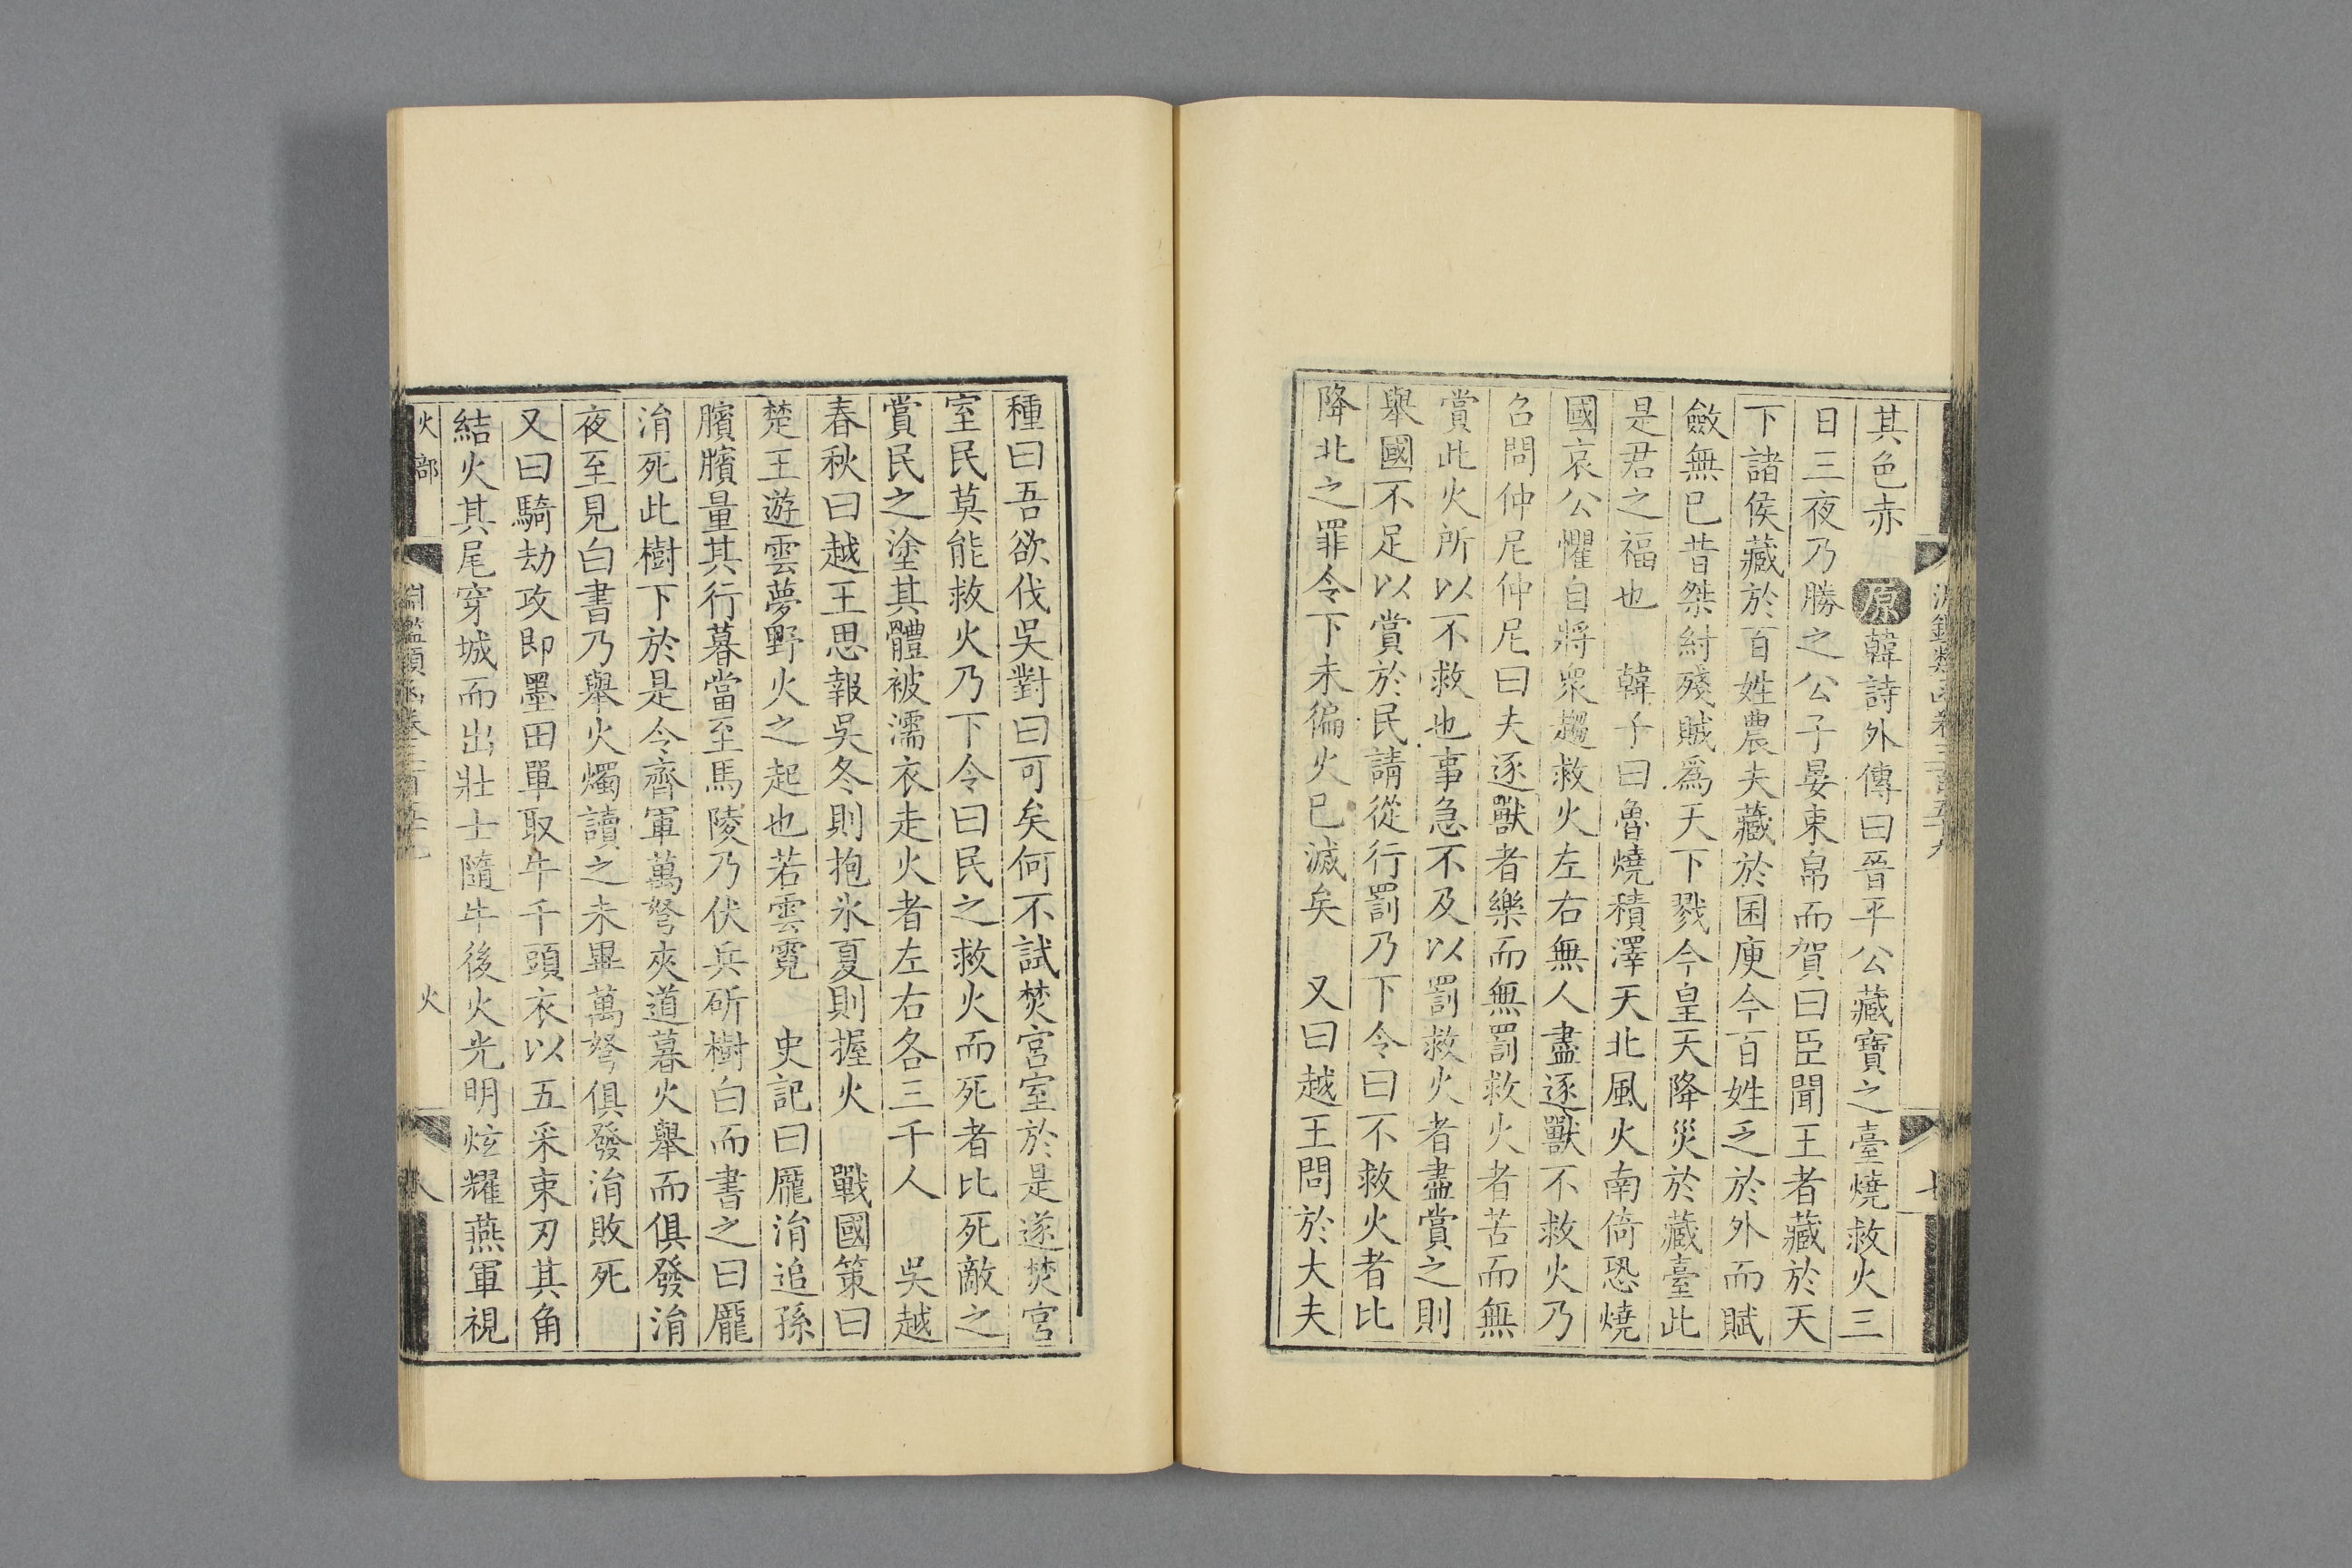 其色赤　原韓詩外傳曰晉平公藏寶之臺燒救火三
日三夜乃勝之公子晏束帛而賀曰臣聞王者藏於天
下諸侯藏於百姓農夫藏於囷庾今百姓乏於外而賦
斂無已昔桀紂殘賊爲天下戮今皇天降災於藏臺此
是君之福也　韓子曰魯燒積澤天北風火南倚恐燒
國哀公懼自將衆趨救火左右無人盡逐獸不救火乃
召問仲尼仲尼曰夫逐獸者樂而無罰救火者苦而無
賞此火所以不救也事急不及以罰救火者盡賞之則
舉國不足以賞於民請從行罰乃下令曰不救火者比
降北之罪令下未徧火已滅矣　又曰越王問於大夫
種曰吾欲伐吳對曰可矣何不試焚宮室於是遂焚宮
室民莫能救火乃下令曰民之救火而死者比死敵之
賞民之塗其體被濡衣走火者左右各三千人　吳越
春秋曰越王思報吳冬則抱氷夏則握火　戰國策曰
楚王遊雲夢野火之起也若雲霓　史記曰龐涓追孫
臏臏量其行暮當至馬陵乃伏兵斫樹白而書之曰龐
涓死此樹下於是令齊軍萬弩夾道暮火舉而俱發涓
夜至見白書乃舉火燭讀之未畢萬弩俱發涓敗死
又曰騎劫攻即墨田單取牛千頭衣以五采束刃其角
結火其尾穿城而出壯士隨牛後火光明炫耀燕軍視
火部　淵鑑類函卷三百五十九　火　八